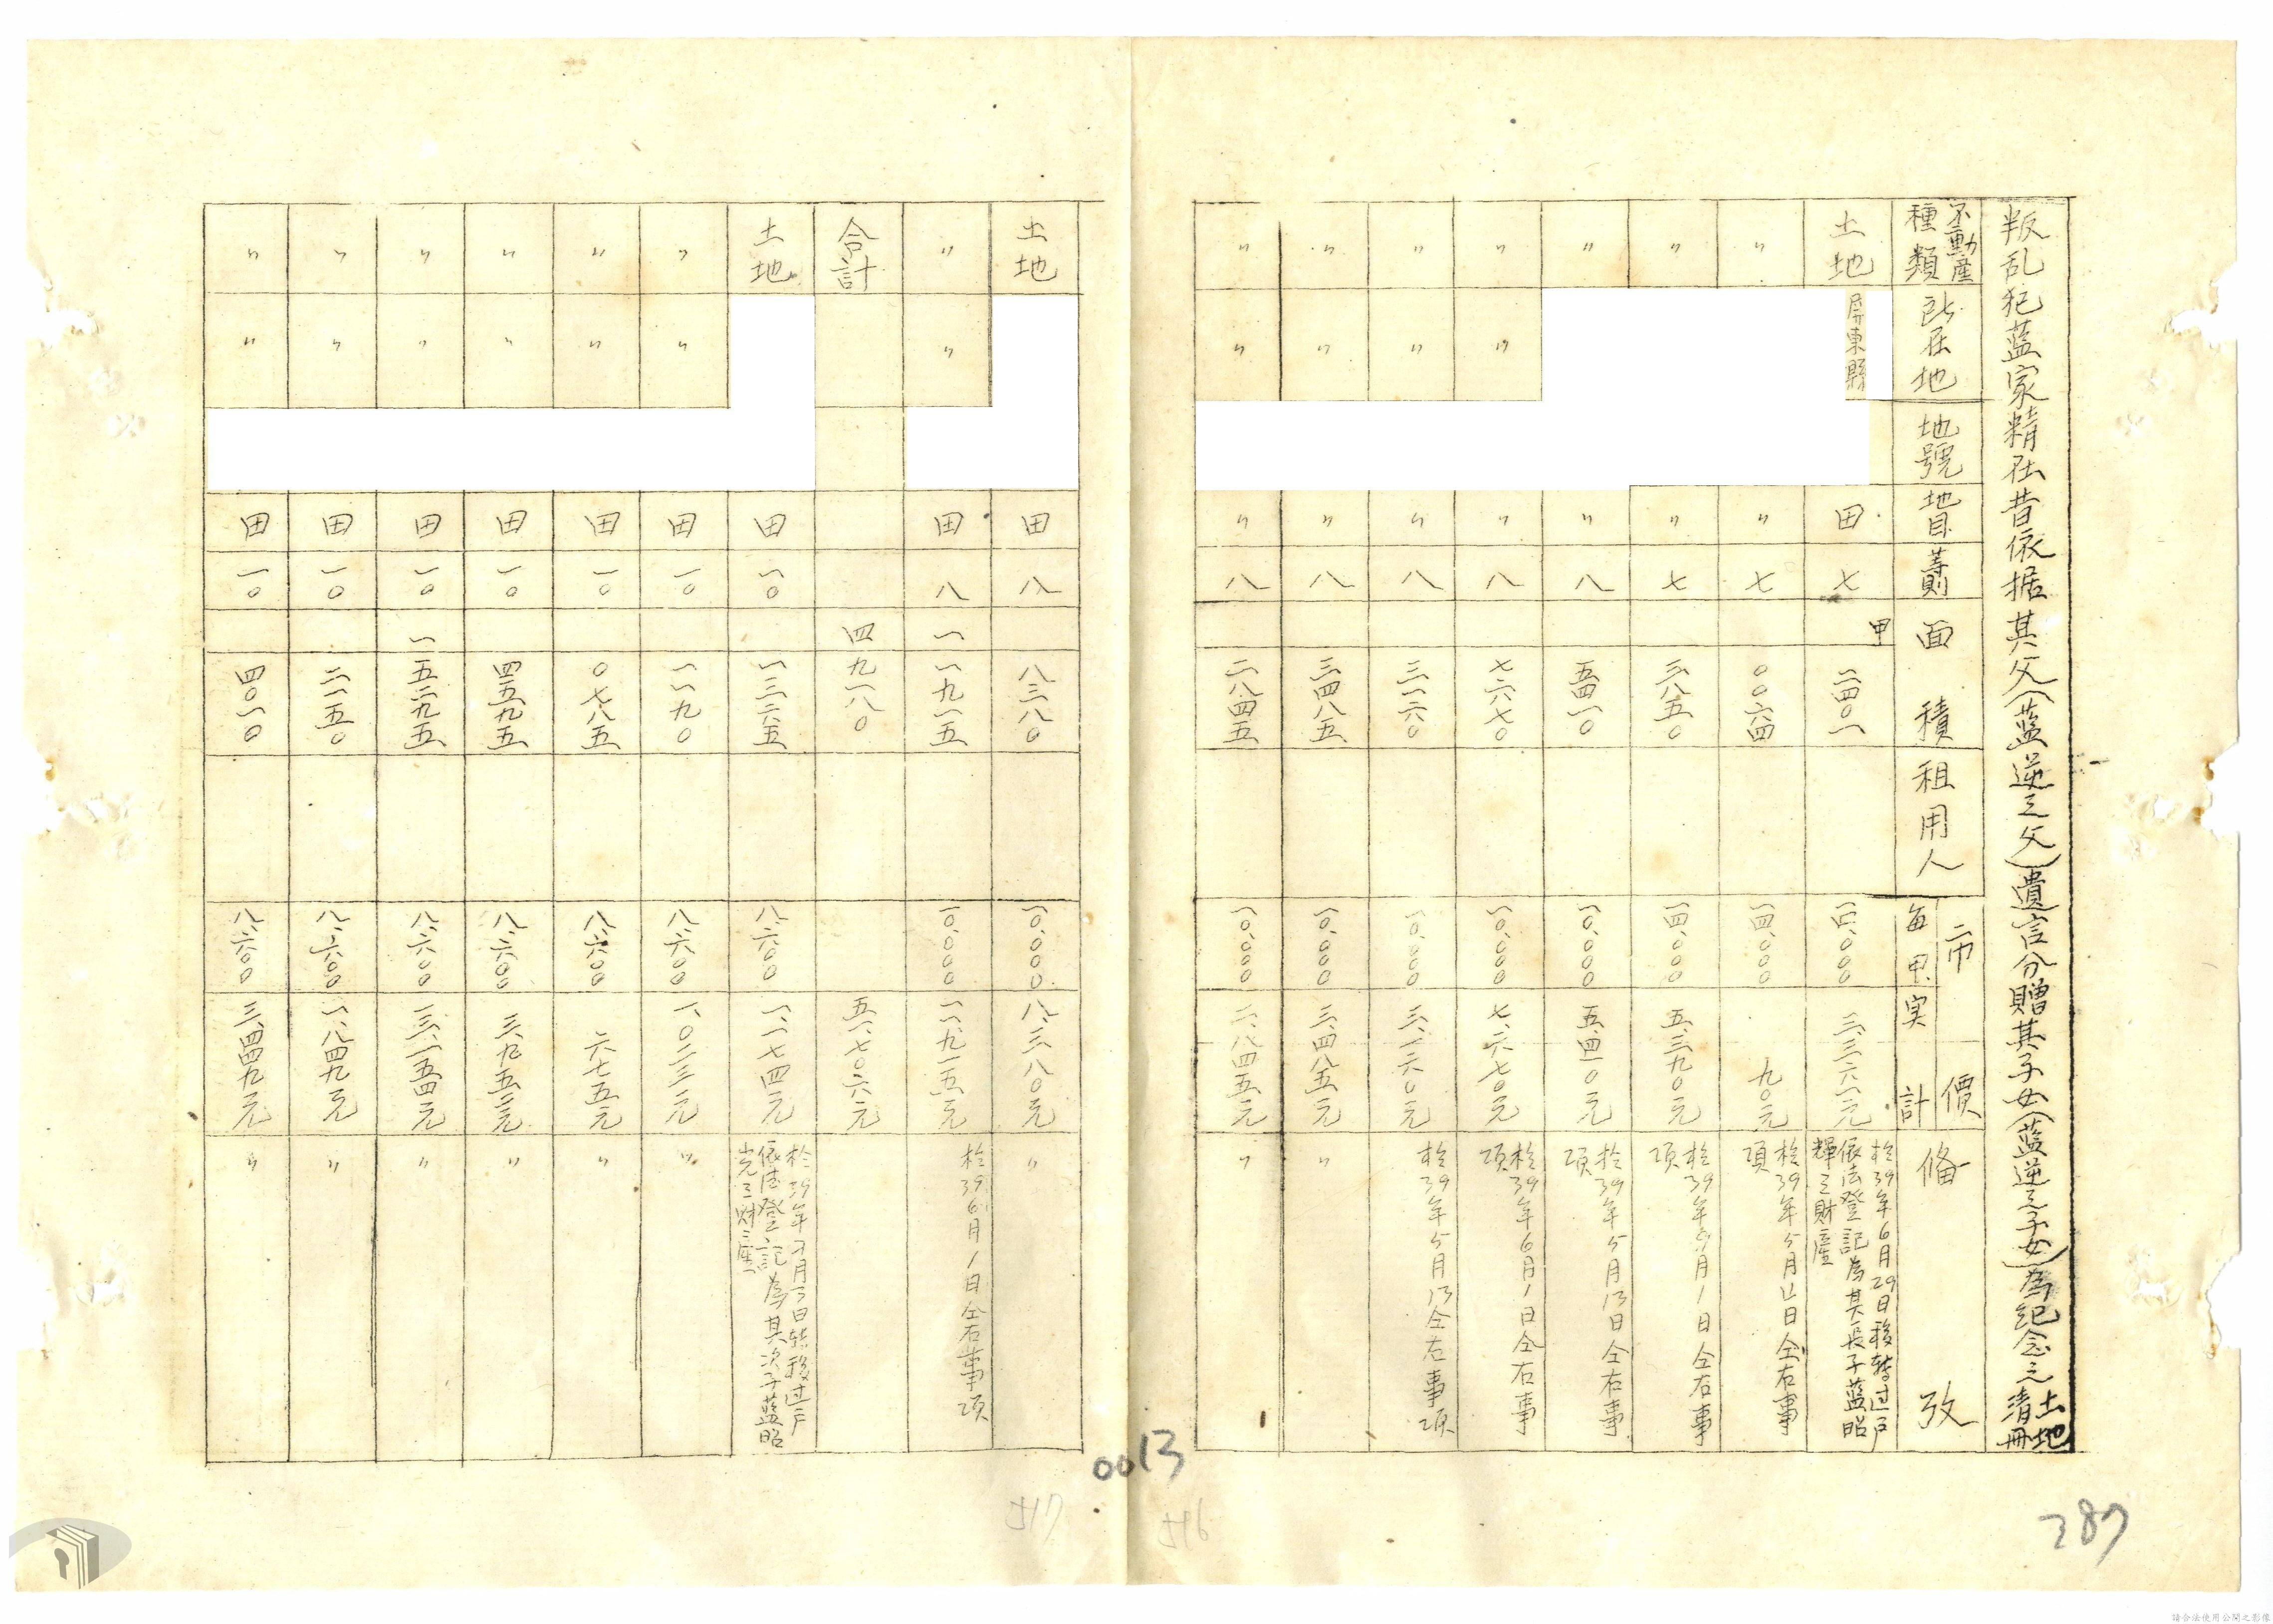 叛乱犯藍家精在昔依据其父(藍逆之父)遺言分贈其子女(藍逆之子女)為紀念之土地清冊
不動產種類 所在地 地號 地目 等則 面積 租用人 市價 每甲 实計 俻攷
土地 屏東縣 田 七 甲 二四〇一 一四、〇〇〇 三、三六一元 於39年6月29日移轉过戶依法登記為其長子藍昭輝之財產
〃 〃 七 〇〇六四 一四、〇〇〇 九〇元 於39年5月 日仝右事項
〃 〃 七 三八五〇 一四、〇〇〇 五、三九〇元 於39年 月1日仝右事項
〃 〃 八 五四一〇 一〇、〇〇〇 五、四一〇元 於39年5月13日仝右事項
〃 〃 〃 八 七六七〇 一〇、〇〇〇 七、六七〇元 於39年6月1日仝右事項
〃 〃 〃 八 三一六〇 一〇、〇〇〇 三、一六〇元 於39年5月13仝右事項
〃 〃 〃 八 三四八五 一〇、〇〇〇 三、四八五元 〃
〃 〃 〃 八 二八四五 一〇、〇〇〇 二、八四五元 〃
土地 田 八 八三八〇 一〇、〇〇〇 八、三八〇元 〃
〃 〃 田 八 一 一九一五 一〇、〇〇〇 一一、九一五元 於39 6月1日仝右事項
合計 四 九一八〇 五一、七〇六元
土地 田 一〇 一三六五 八、六〇〇 一、一七四元 於39年 月 日转移过戶依法登記為其次子藍昭光之財產
〃 〃 田 一〇 一一九〇 八、六〇〇 一、〇二三元 〃
〃 〃 田 一〇 〇七八五 八、六〇〇 六七五元 〃
〃 〃 田 一〇 四五九五 八、六〇〇 三、九五二元 〃
〃 〃 田 一〇 一 五二九五 八、六〇〇 一三、一五四元 〃
〃 〃 田 一〇 二一五〇 八、六〇〇 一、八四九元 〃
〃 〃 田 一〇 四〇一〇 八、六〇〇 三、四四九元 〃
0013
517
516
287
請合法使用公開之影像